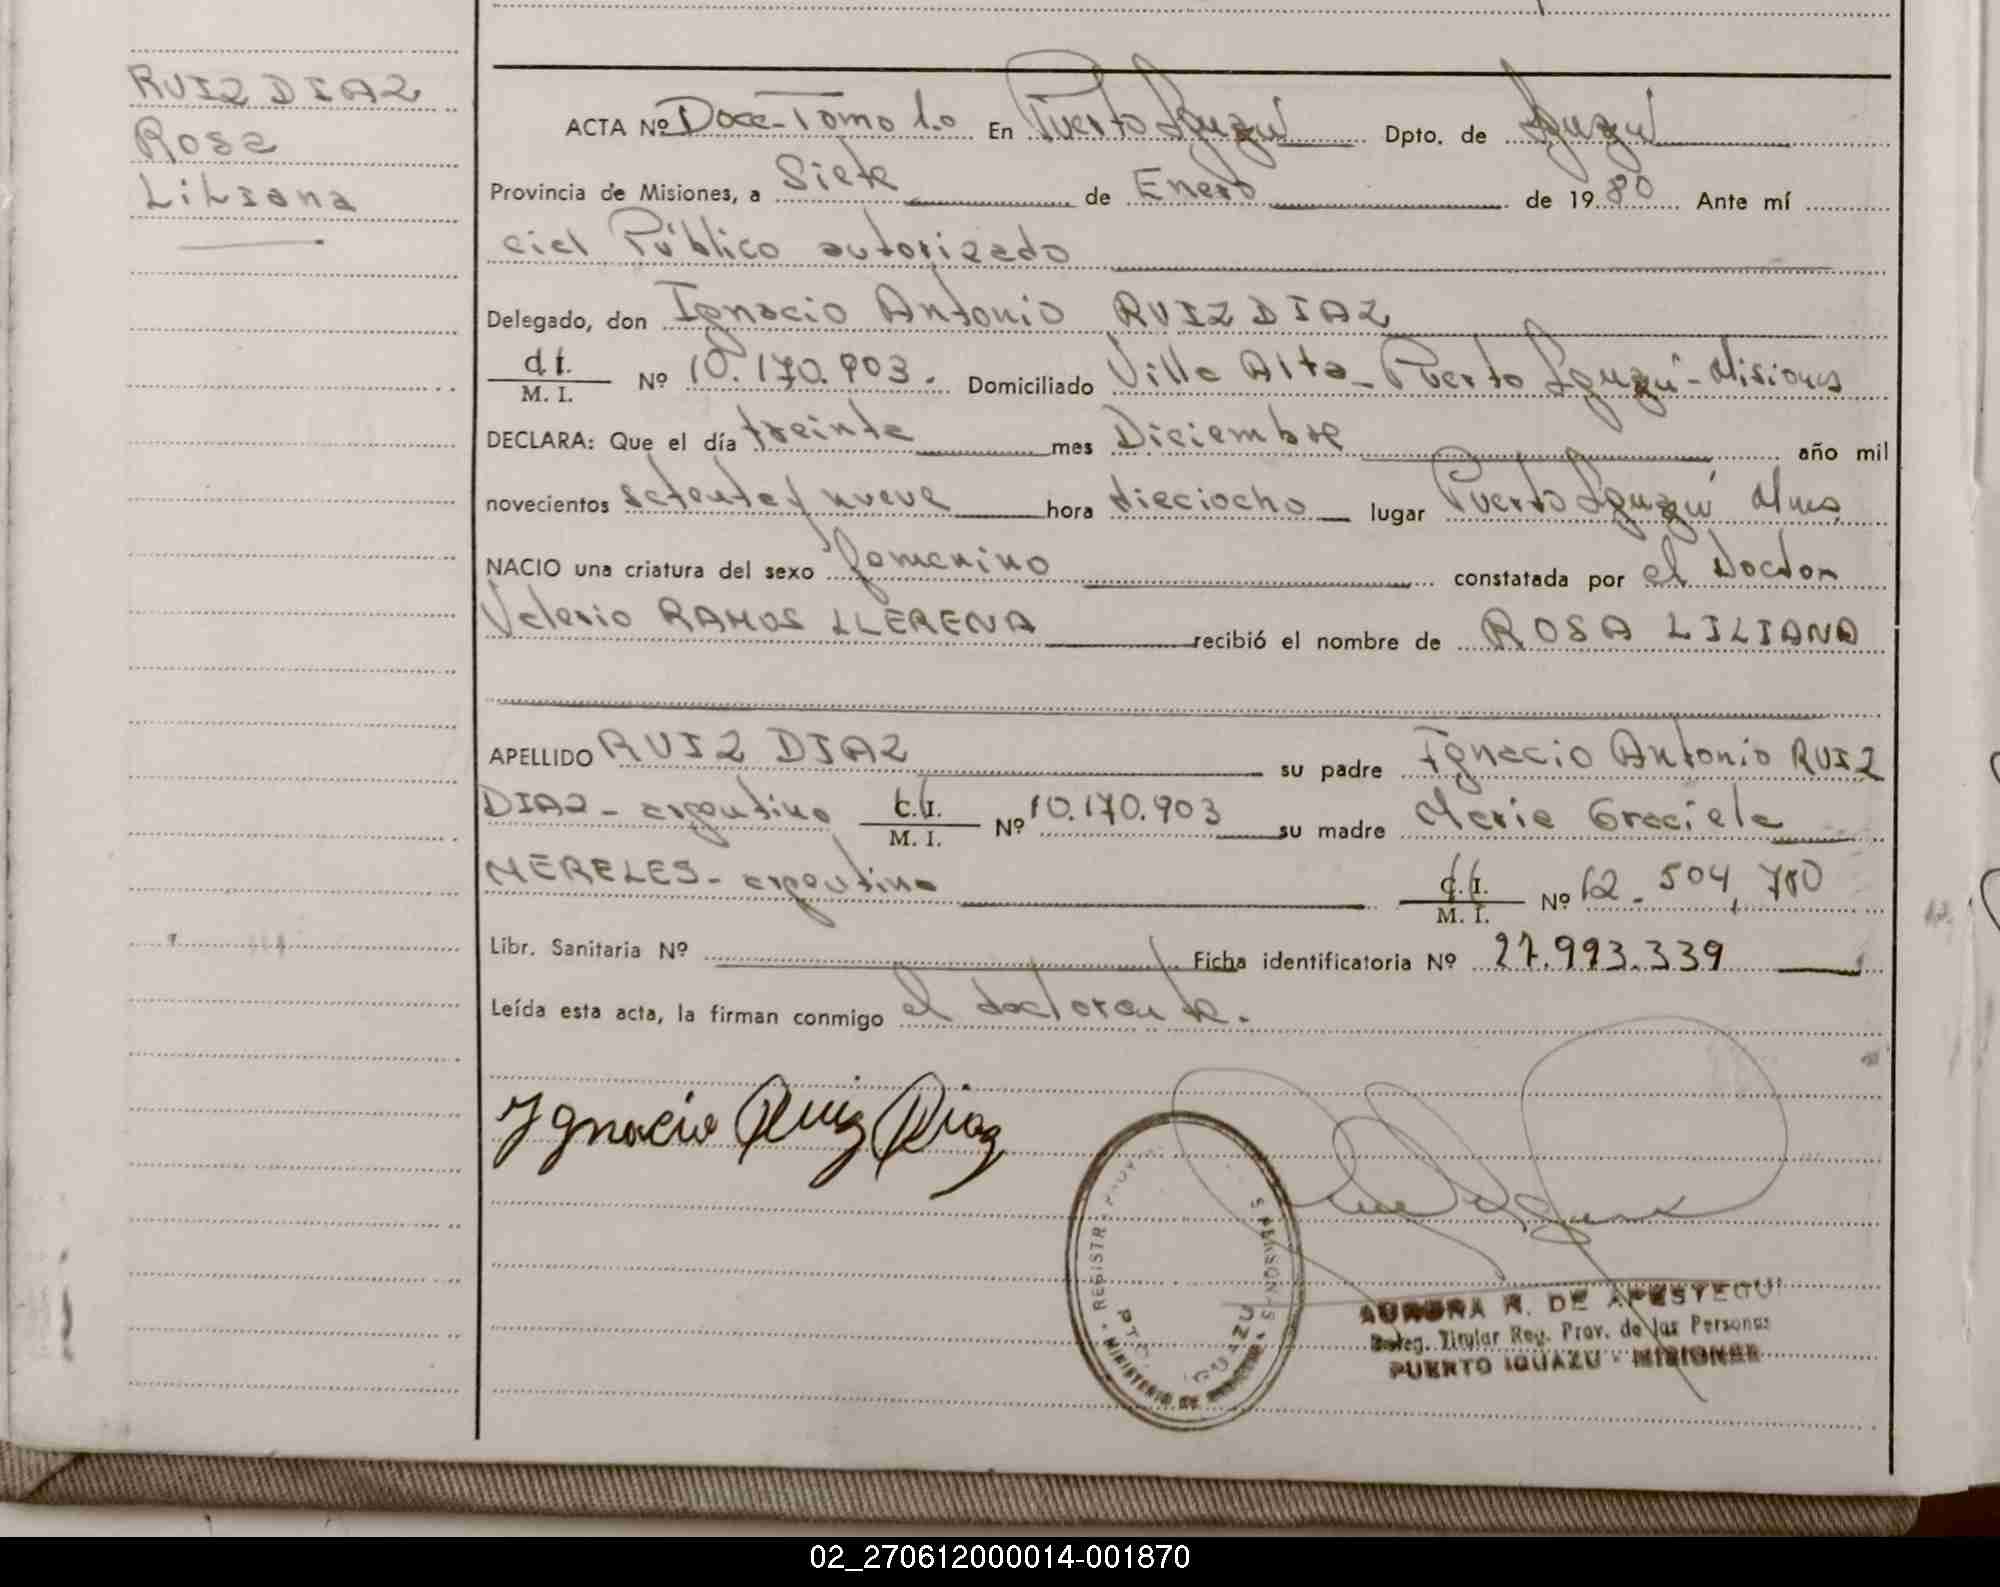 RUIZ DIAZ
Rosa
Liliana
ACTA Nº Doce-Tomo 1.o En Puerto Iguazú Dpto. de Iguazú
Provincia de Misiones, a Siete de Enero de 1980 Ante mí
cial Público autorizado
Delegado, don Ignacio Antonio RUIZ DIAZ
M. I. Nº 10.170.903. Domiciliado Villa Alta-Puerto Iguazú-Misiones
DECLARA: Que el día treinta mes Diciembre año mil
novecientos setenta y nueve hora dieciocho lugar Puerto Iguazú Mnes
NACIO una criatura del sexo femenino constatada por el Doctor
Valerio RAMOS LLERENA recibió el nombre de ROSA LILIANA
APELLIDO RUIZ DIAZ su padre Ignacio Antonio RUIZ
DIAZ- argentino C.I. M. I. Nº 10.170.903 su madre Maria Graciela
MERELES- argentina C.I. M. I. Nº 12.504.780
Libr. Sanitaria Nº Ficha identificatoria Nº 27.993.339
Leída esta acta, la firman conmigo el declarante.
Ignacio Ruiz Diaz
REGISTR PROV. S PERSONAS
PTO. IGUAZU
MINISTERIO DE
AURORA R. DE APESTEGUI
Deleg. Titular Reg. Prov. de las Personas
PUERTO IGUAZU - MISIONES
02_270612000014-001870